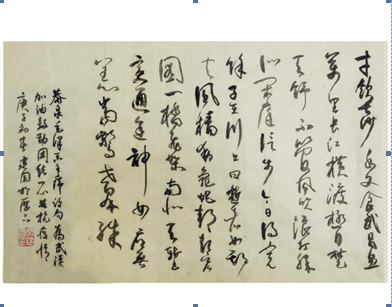 才饮长沙水又食武昌鱼
万里长江横渡极目楚
天舒不管风吹浪打胜
似闲庭信步今日得宽
馀子在川上曰逝者如斯
夫风樯动龟蛇静起宏
图一桥飞架南北天堑
变通途神女应无
恙当惊世界殊
恭录毛泽东主席诗句为武汉
加油鼓劲团结共抗疫情
庚子初春建国於